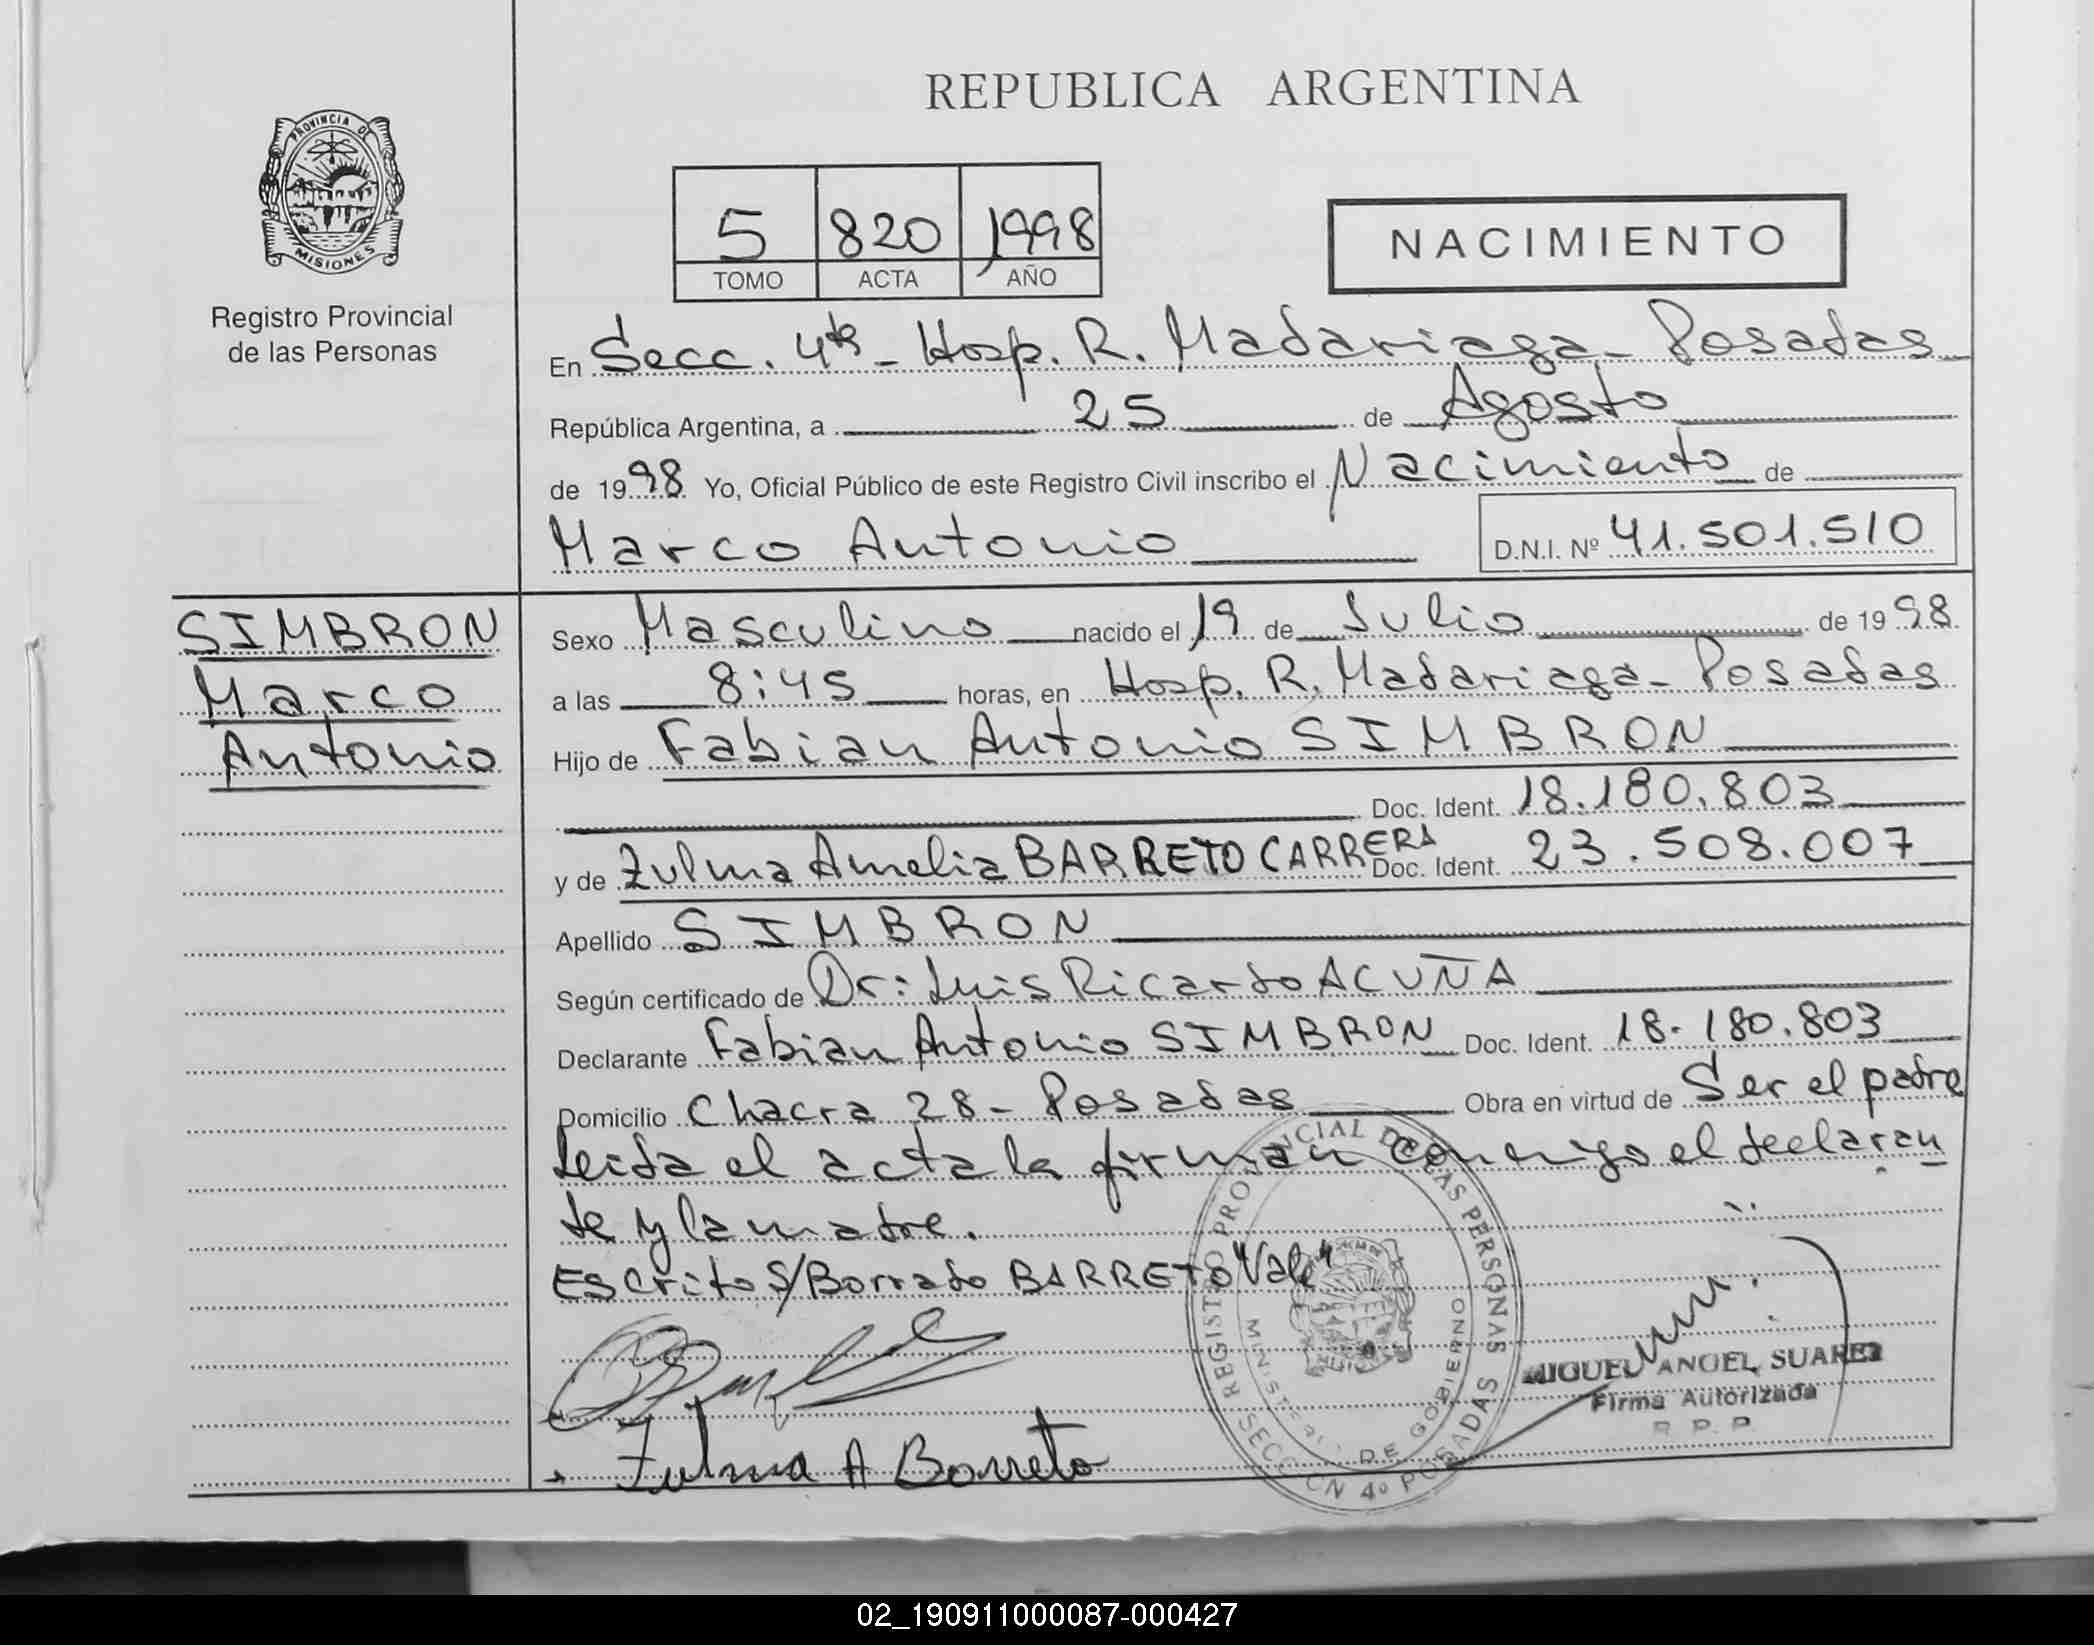 REPUBLICA ARGENTINA
PROVINCIA DE
MISIONES
Registro Provincial
de las Personas
5 820 1998
TOMO ACTA AÑO
NACIMIENTO
En Secc. 4ta - Hosp. R. Madariaga - Posadas
República Argentina, a 25 de Agosto
de 1998 Yo, Oficial Público de este Registro Civil inscribo el Nacimiento de
Marco Antonio D.N.I. Nº 41.501.510
SIMBRON
Marco
Antonio
Sexo Masculino nacido el 19 de Julio de 1998
a las 8:45 horas, en Hosp. R. Madariaga - Posadas
Hijo de Fabian Antonio SIMBRON
Doc. Ident. 18.180.803
y de Zulma Amelia BARRETO CARRERA Doc. Ident. 23.508.007
Apellido SIMBRON
Según certificado de Dr: Luis Ricardo ACUÑA
Declarante Fabian Antonio SIMBRON Doc. Ident. 18.180.803
Domicilio Chacra 28 - Posadas Obra en virtud de Ser el padre
Leida el acta la firman conmigo el declaran
te y la madre.
Escrito S/Borrado BARRETO "Vale"
REGISTRO PROVINCIAL DE LAS PERSONAS
MINISTERIO DE GOBIERNO
SECCION 4º POSADAS
MIGUEL ANGEL SUAREZ
Firma Autorizada
R. P. P.
Zulma A Barreto
02_190911000087-000427